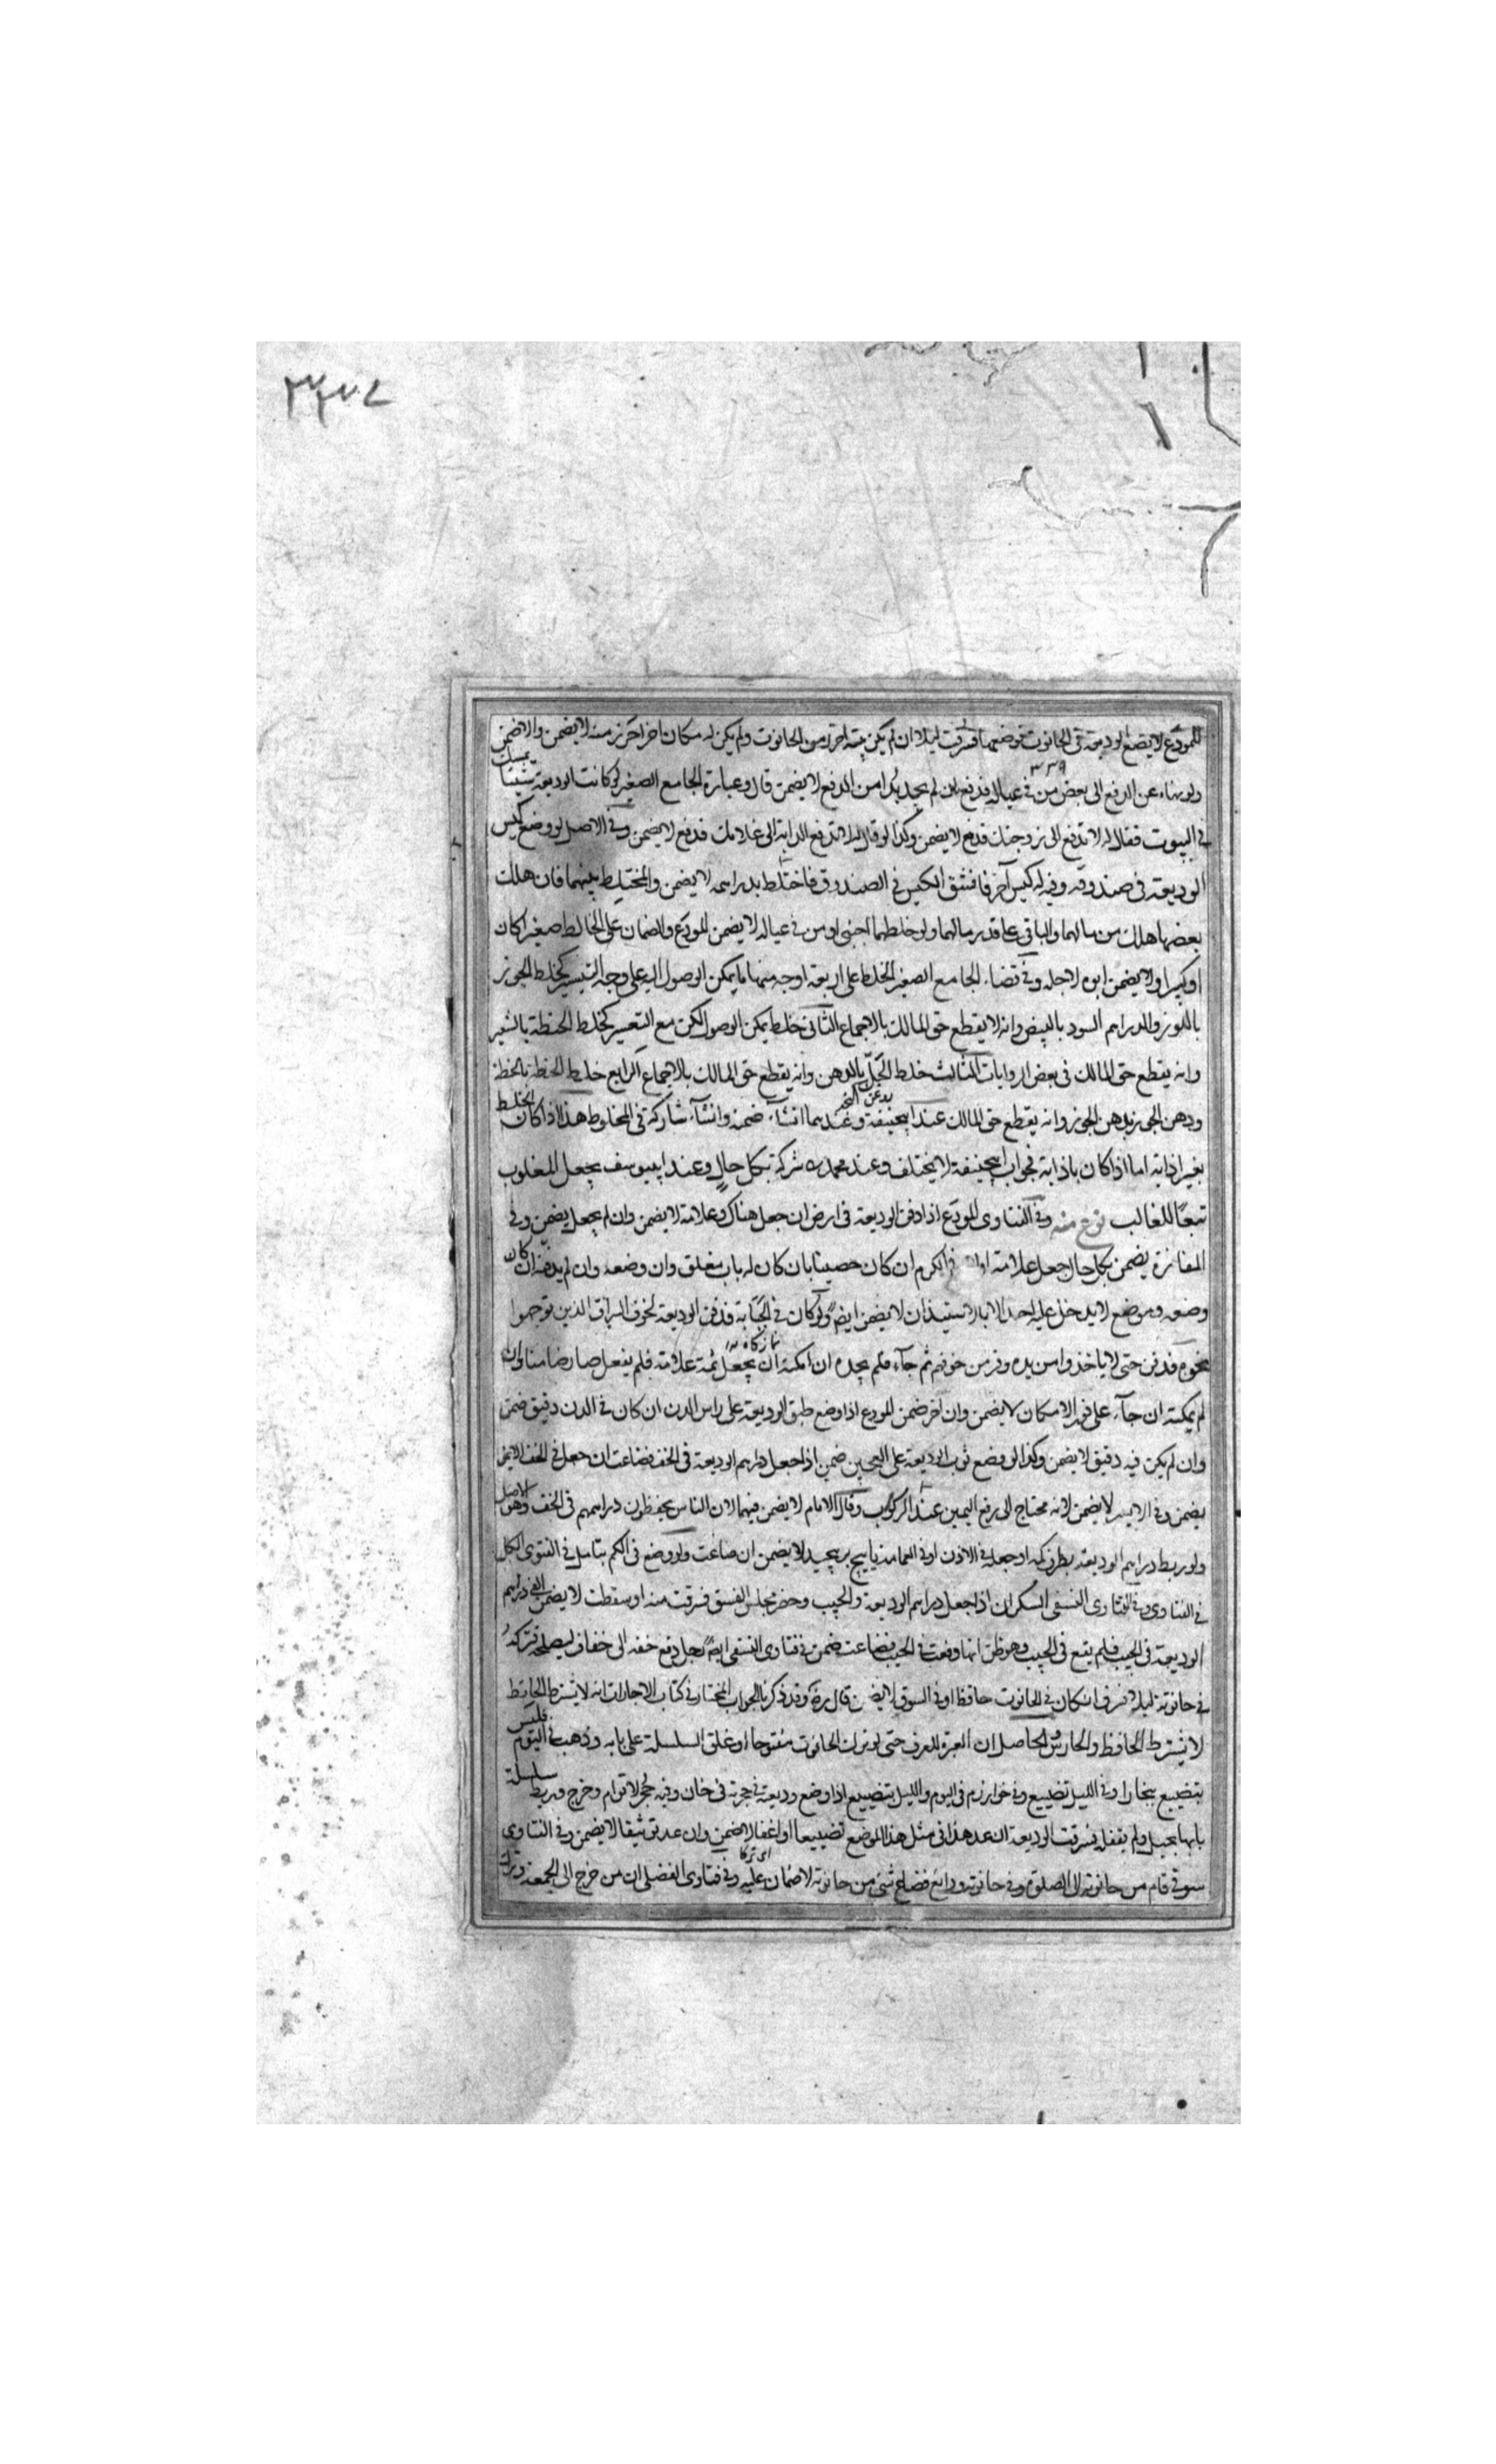 ٣٣٧
للمودع لا يضع الوديعة في الحانوت فوضعها فسرقت ليلا ان لم يكن بيته احرز من الحانوت ولم يكن له مكان اخر احرز منه لا يضمن والا ضمن
ولو نهاه عن الدفع الى بعض من في عياله فدفع ان لم يجد بدا من الدفع لا يضمن قال وعبارة الجامع الصغير لو كانت الوديعة شيئا يمسك
٣٣٩
في البيوت فقال له لا تدفع الى زوجتك فدفع لا يضمن وكذا لو قال لا تدفع الدابة الى غلامك فدفع لا يضمن وفي الاصل لو وضع كيس
الوديعة في صندوقه وفيه له كيس آخر فانشق الكيس في الصندوق فاختلط بدراهمه لا يضمن والمختلط بينهما فان هلك
بعضها هلك من مالهما والباقي على قدر مالهما ولو خلطهما اجنبي او من في عياله لا يضمن المودع والضمان على الخالط صغيرا كان
او كبيرا ولا يضمن ابوه لاجله وفي قضاء الجامع الصغير الخلط على اربعة اوجه منها ما يمكن الوصول اليه على وجه التيسير كخلط الجوز
باللوز والدراهم السود بالبيض وانه لا يقطع حق المالك بالاجماع الثاني خلط يمكن الوصول لكن مع التعسير كخلط الحنطة بالشعير
وانه يقطع حق المالك في بعض الروايات الثالث خلط الخل بالدهن وانه يقطع حق المالك بالاجماع الرابع خلط الحنطة بالحنطة
ودهن الجوز بدهن الجوز وانه يقطع حق المالك عند ابيحنيفة وعندهما ان شاء ضمنه وان شاء شاركه في المخلوط هذا اذا كان الخلط
بغير اذنه اما اذا كان باذنه فجواب ابيحنيفة لا يختلف وعند محمد ره شركة بكل حال وعند ابييوسف يجعل المغلوب
تبعا للغالب نوع منه وفي الفتاوى المودع اذا دفن الوديعة في ارض ان جعل هناك علامة لا يضمن وان لم يجعل يضمن وفي
المفازة يضمن بكل حال جعل علامة او لا في الكرم ان كان حصينا بان كان له باب مغلق وان وضعه وان لم يدفنه ان كان
وضعه موضع لا يدخل عليه احد الا بالاستيذان لا يضمن ايضا ولو كان في الجبانة فدفن الوديعة لخوف السراق الذين توجهوا
نمازكاه
نحوه فدفن حتى لا ياخذوا من يده وفر من خوفهم ثم جاء فلم يجده ان امكنه ان يجعل ثمة علامة فلم يفعل صار ضامنا وان
لم يمكنه ان جاء على فور الامكان لا يضمن وان اخر ضمن المودع اذا وضع طبق الوديعة على راس الدن ان كان في الدن دقيق ضمن
وان لم يكن فيه دقيق لا يضمن وكذا لو وضع ثوب الوديعة على العجين ضمن اذا جعل دراهم الوديعة في الخف فضاعت ان جعل في الخف الايمن
يضمن وفي الايسر لا يضمن لانه محتاج الى رفع اليمين عند الركوب وقال الامام لا يضمن فيهما لان الناس يحفظون دراهمهم في الخف وهو الاصل
ولو ربط دراهم الوديعة بطرف كمه او جعله في الاذن او في العمامة لا يضمن ان ضاعت ولو وضع في الكم يتامل في الفتوى الكل
في الفتاوى وفي الفتاوى النسفي السكران اذا جعل دراهم الوديعة والجيب وحضر مجلس الفسق فسرقت منه او سقطت لا يضمن القى دراهم
الوديعة في الجيب فلم يقع في الجيب وهو ظن انها وقعت في الجيب فضاعت ضمن في فتاوى النسفي ايضا رجل دفع خفه الى خفاف ليصلحه فتركه
في حانوته ليلا فسرق ان كان في الحانوت حافظ او في السوق لا يضمن قال رضه وقد ذكرنا الجواب المختار في كتاب الاجارات انه لا يشترط الحافظ
لا يشترط الحافظ والحارس والحاصل ان العبرة للعرف حتى لو ترك الحانوت مفتوحا او غلق السلسلة على بابه وذهب في اليوم فليس
بتضييع ببخارا وفي الليل تضييع وفي خوارزم في اليوم والليل بتضييع اذا وضع وديعة في حجرته في خان وفيه حجر لاقوام وخرج وربط سلسلة
بابها بحبل ولم يقفل فسرقت الوديعة ان عد هذا في مثل هذا الموضع تضييعا او اغفالا ضمن وان عد توثيقا لا يضمن وفي الفتاوى
سوقي قام من حانوته الى الصلوة وفي حانوته ودائع فضاع شيء من حانوته لا ضمان عليه وفي فتاوى الفضلي ان من خرج الى الجمعة وترك